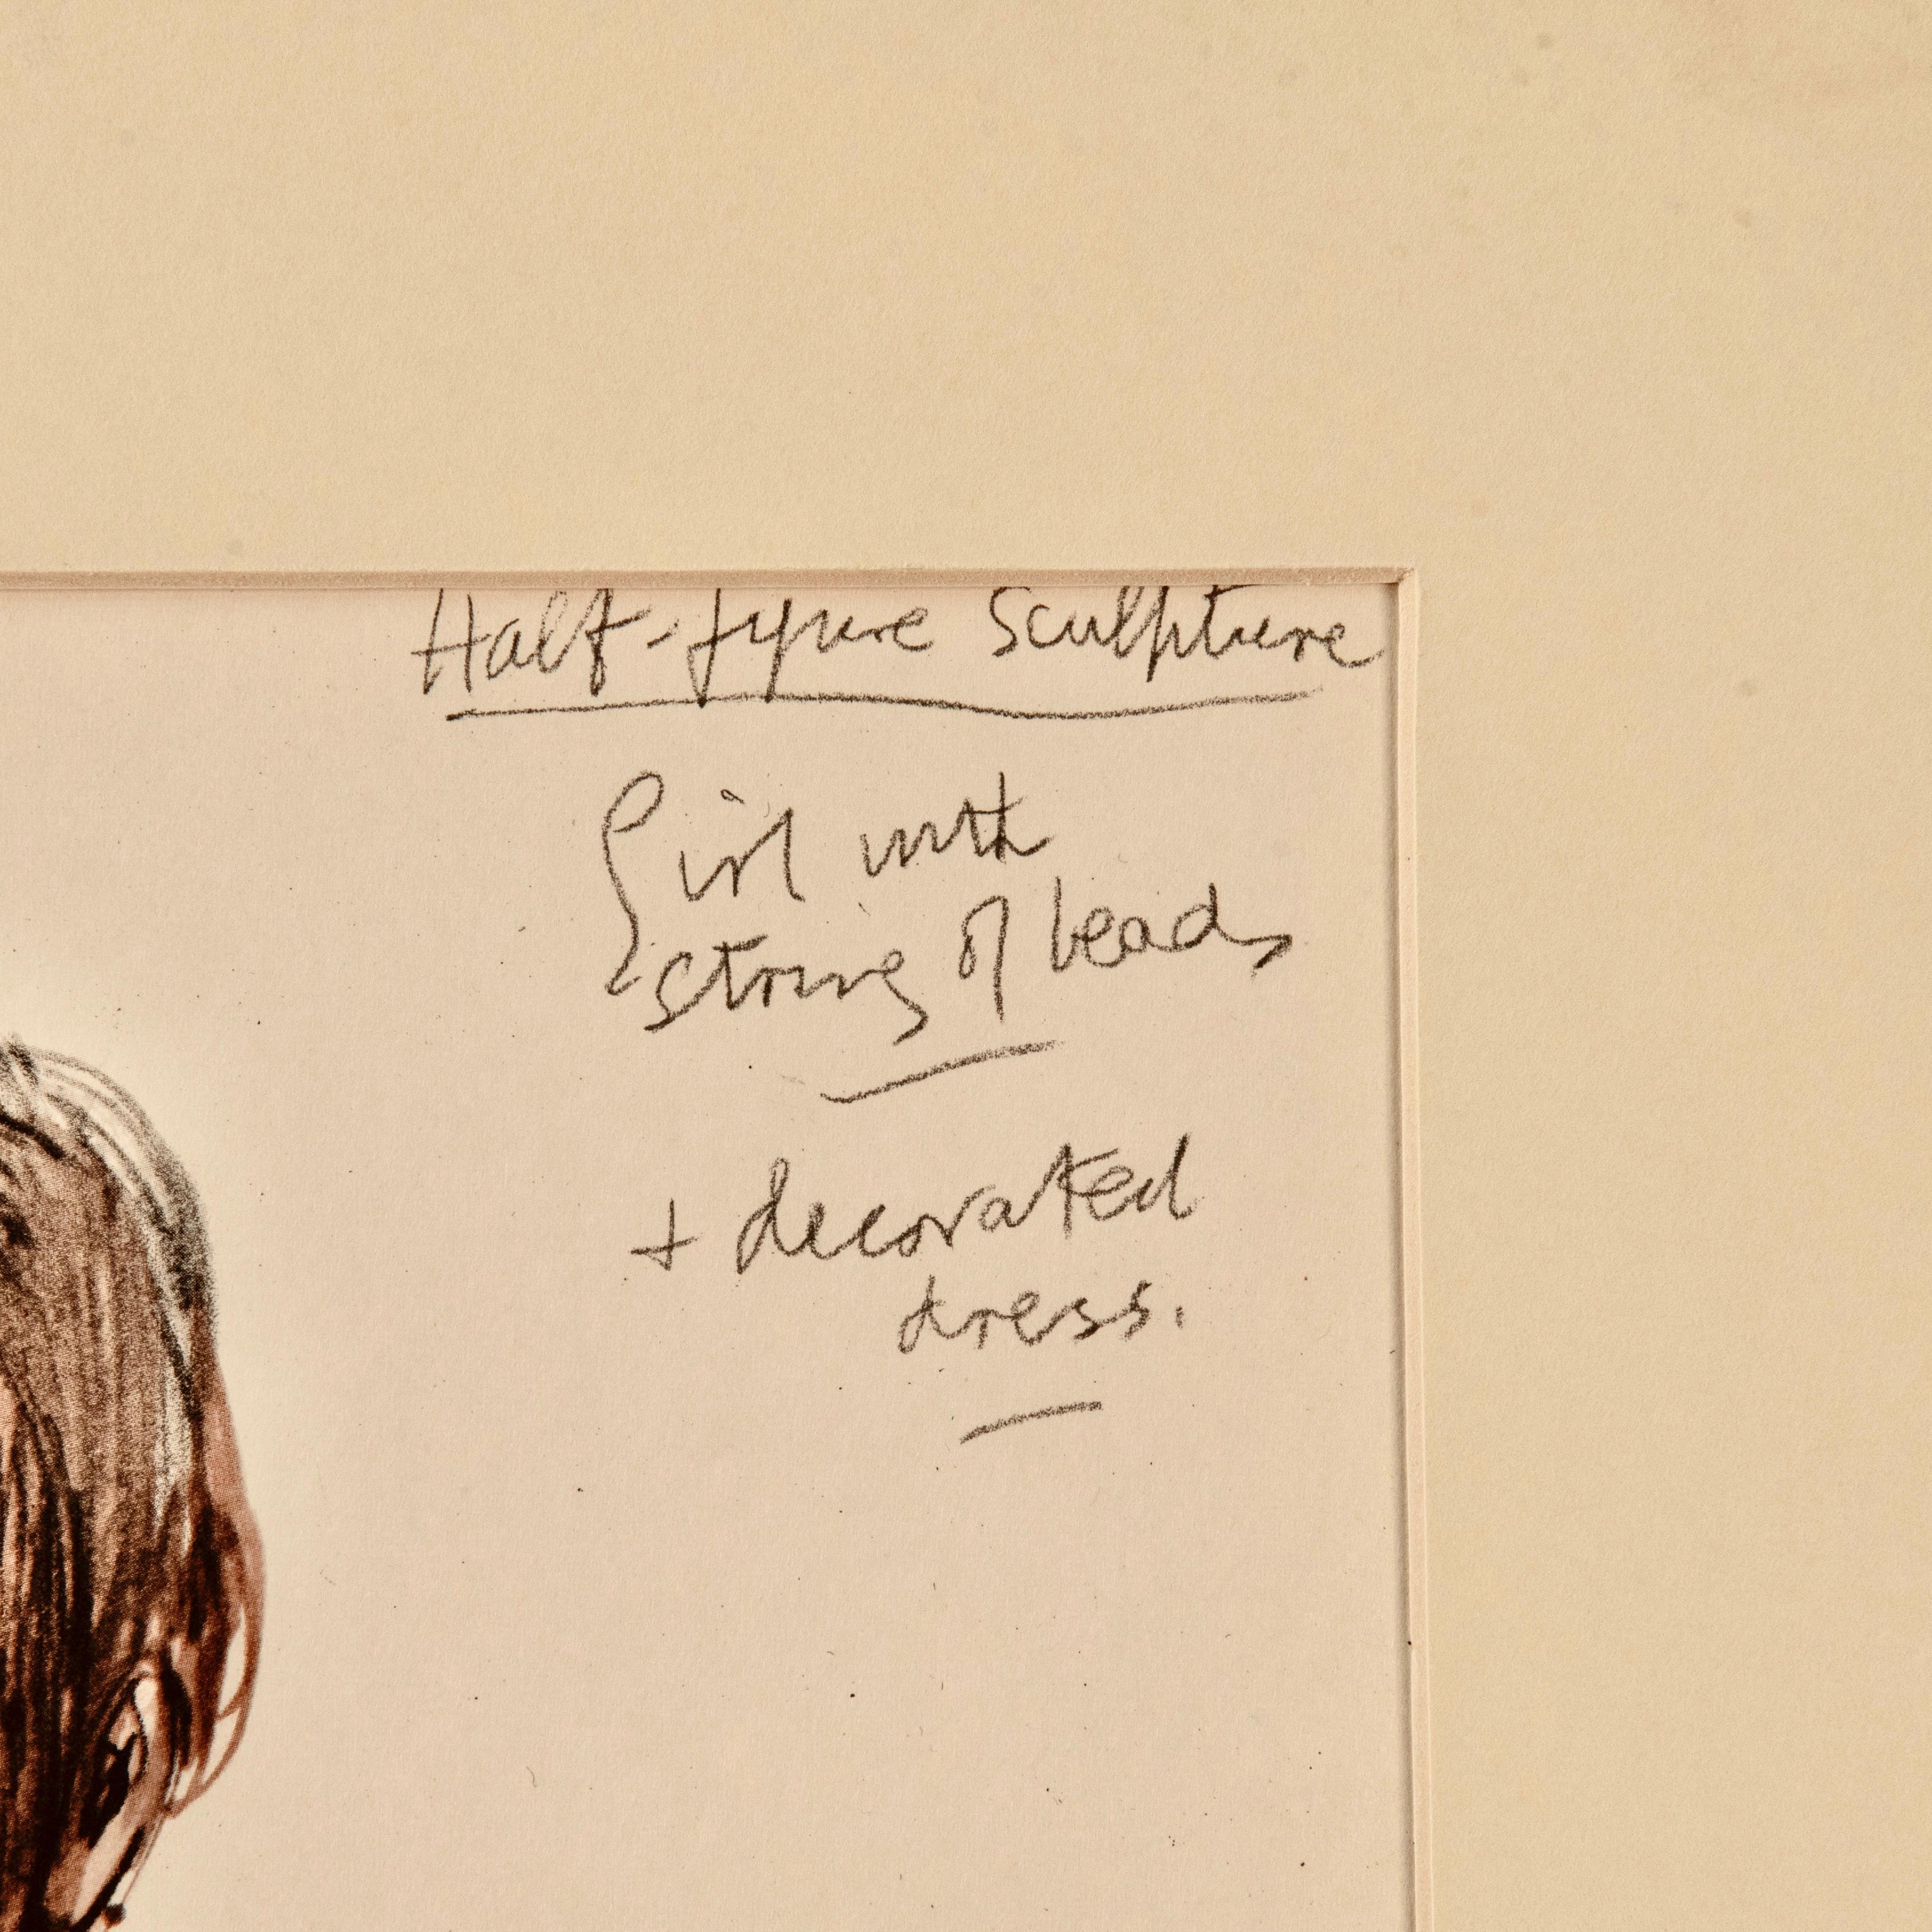 Half-figure Sculpture
Girl with
string of beads
+ decorated
dress.